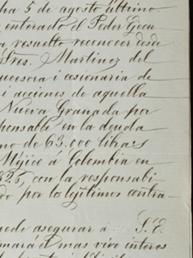 ha 5 de agosto ultimo
enterado el Poder Ejecu
a resuelto reconocer desde
Sres. Martinez del
cesora i cesionaria de
i acciones de aquella
Nueva Granada por
ponsable en la deuda
no de 63.000 libras
Méjico á Colombia en
825, con la responsabili
do por lejítimos contra-
uedo asegurar á S.E.
mará el mas vivo interes